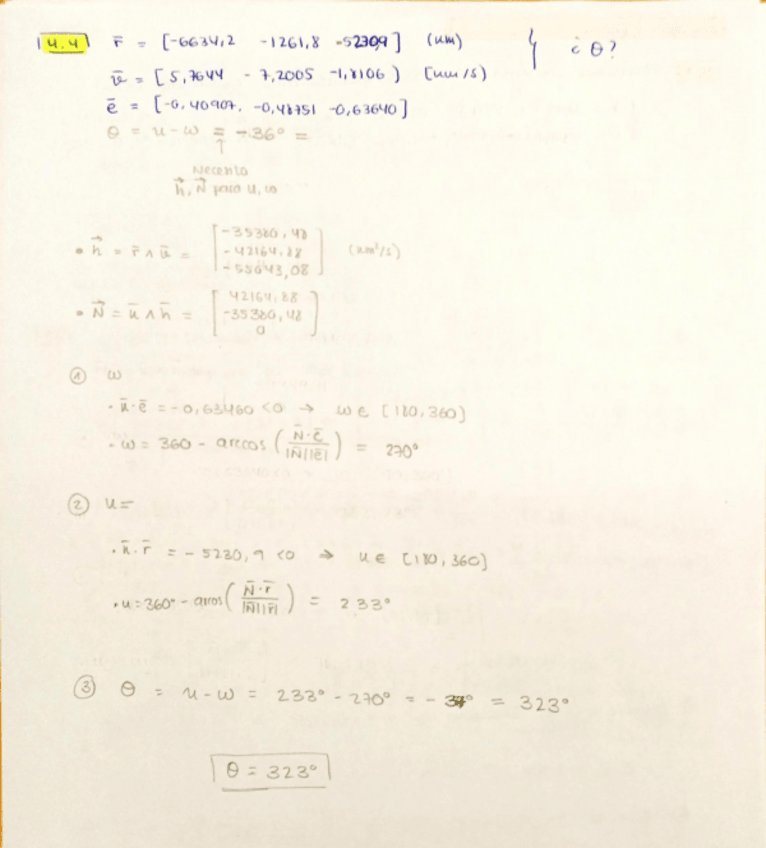 4.4 r̄ = [-6634,2 -1261,8 -5230,9] (km) } ¿ θ?
v̄ = [5,7644 - 7,2005 -1,8106] (km/s)
ē = [-0,40907. -0,48751 -0,63640]
θ = u - ω = -36° =
↑
Necesito
h⃗, N⃗ para u, ω
• h⃗ = r̄ ∧ v̄ = [-35380,48 -42164,88 -55043,08] (km²/s)
• N⃗ = ū ∧ h̄ = [42164,88 -35380,48 0]
① ω
• ū·ē = -0,63460 <0 → ω ∈ [180,360]
• ω = 360 - arccos (N̄·ē / |N̄||ē|) = 270°
② u =
• ū·r̄ = - 5230,9 <0 → u ∈ [180,360]
• u = 360° - arcos (N̄·r̄ / |N̄||r̄|) = 233°
③ θ = u - ω = 233° - 270° = - 37° = 323°
θ = 323°